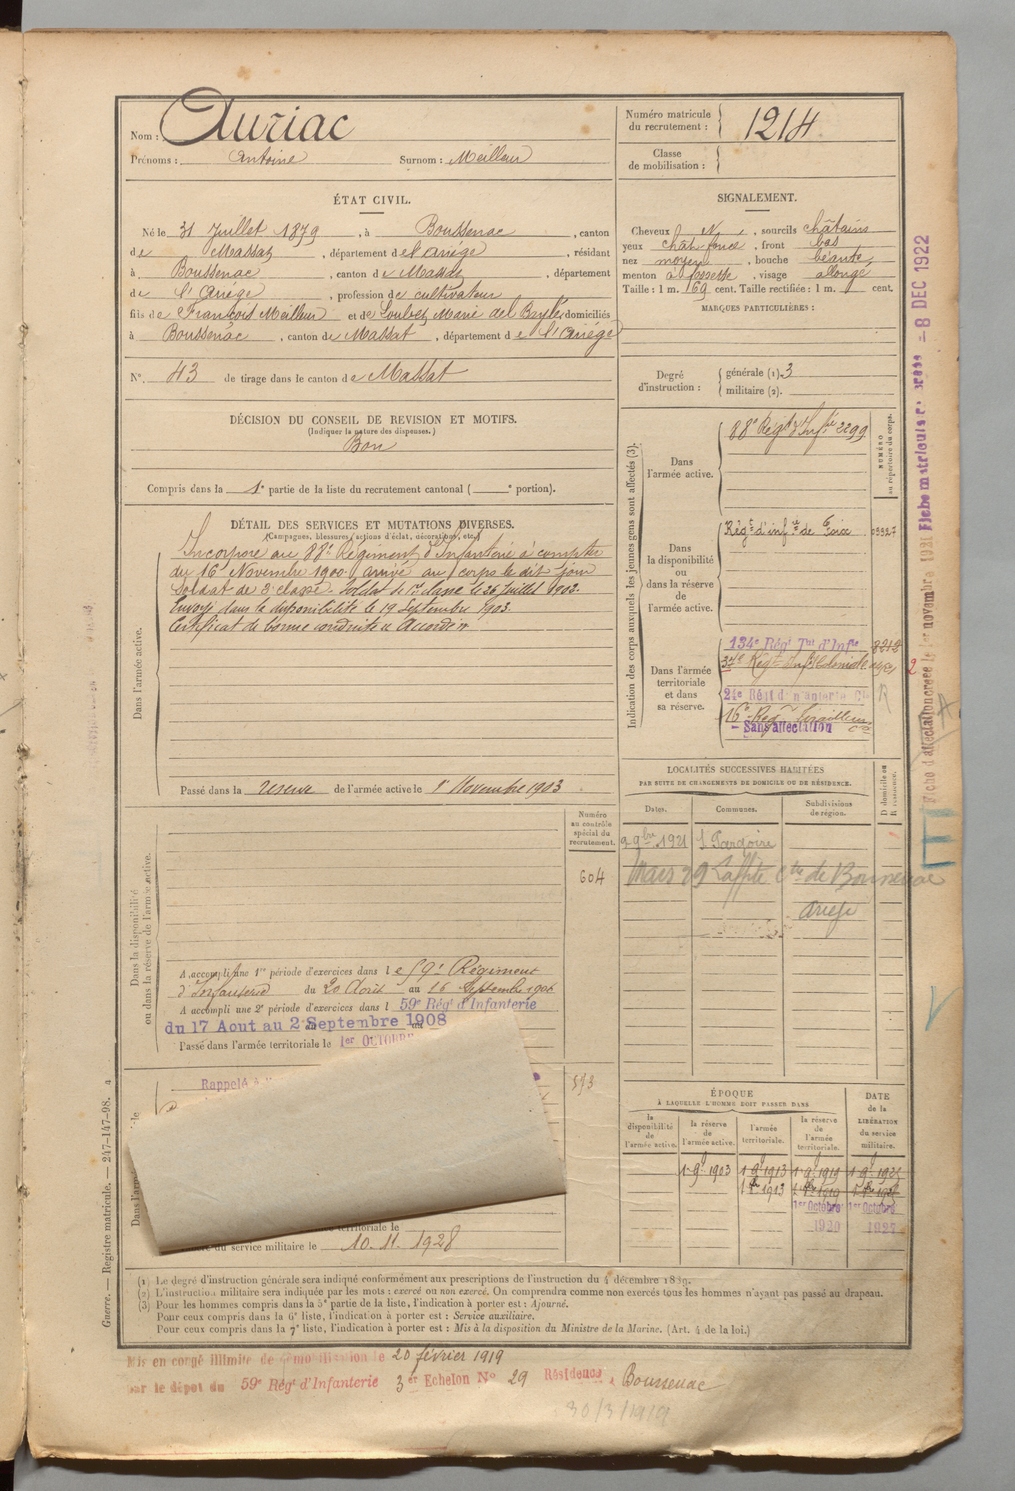 Nom : Auriac
Prénoms : Antoine Surnom : Meilleur
Numéro matricule du recrutement : 1214
Classe de mobilisation :
ÉTAT CIVIL.
Né le 31 Juillet 1879, à Boussenac, canton
de Massat, département de l'Ariège, résidant
à Boussenac, canton de Massat, département
de l'Ariège, profession de cultivateur
fils de François Meilleur et de Loubet Marie del Bayle domiciliés
à Boussenac, canton de Massat, département de l'Ariége
N° 43 de tirage dans le canton de Massat
DÉCISION DU CONSEIL DE REVISION ET MOTIFS.
(Indiquer la nature des dispenses.)
Bon
Compris dans la 1e partie de la liste du recrutement cantonal ( e portion).
SIGNALEMENT.
Cheveux N, sourcils châtains
yeux chât foncé, front bas
nez moyen, bouche béante
menton à fossette, visage allongé
Taille : 1 m. 69 cent. Taille rectifiée : 1 m. cent.
MARQUES PARTICULIÈRES :
Degré d'instruction : générale (1). 3
militaire (2).
DÉTAIL DES SERVICES ET MUTATIONS DIVERSES.
(Campagnes, blessures, actions d'éclat, décorations, etc.)
Dans l'armée active.
Incorporé au 88e Régiment d'Infanterie à compter
du 16 Novembre 1900. arrivé au corps le dit jour
Soldat de 2e classe. Soldat de 1re classe le 26 Juillet 1902.
Envoyé dans la disponibilité le 19 Septembre 1903.
Certificat de bonne conduite "Accordé".
Passé dans la réserve de l'armée active le 1er Novembre 1903
Indication des corps auxquels les jeunes gens sont affectés (3).
NUMÉRO au répertoire du corps.
Dans l'armée active.
88e Régt d'Infie 2299
Dans la disponibilité ou dans la réserve de l'armée active.
Régt d'infie de Foix
Dans l'armée territoriale et dans sa réserve.
134e Régt Tal d'Infie
Infie Coloniale
16e Régt Tirailleurs
Sans affectation
LOCALITÉS SUCCESSIVES HABITÉES
PAR SUITE DE CHANGEMENTS DE DOMICILE OU DE RÉSIDENCE.
Dates. Communes. Subdivisions de région. D domicile ou R résidence.
9bre 1921
Mars 29 Laffite Cne de Boussenac
Ariège
Dans la disponibilité ou dans la réserve de l'armée active.
Numéro au contrôle spécial du recrutement.
604
A accompli une 1re période d'exercices dans le 59e Régiment
d'Infanterie du 20 Août au 16 Septembre 1906
A accompli une 2e période d'exercices dans l 59e Régt d'Infanterie
du 17 Aout au 2 Septembre 1908
Passé dans l'armée territoriale le 1er OCTOBRE
Rappelé à
territoriale le
du service militaire le 10.11.1928
ÉPOQUE
À LAQUELLE L'HOMME DOIT PASSER DANS
la disponibilité de l'armée active.
la réserve de l'armée active.
l'armée territoriale.
la réserve de l'armée territoriale.
DATE de la LIBÉRATION du service militaire.
1 9bre 1903 1 9bre 1913 1 9bre 1919
1913 1919
1er Octobre 1er Octobre
1920
(1) Le degré d'instruction générale sera indiqué conformément aux prescriptions de l'instruction du 4 décembre 1889.
(2) L'instruction militaire sera indiquée par les mots : exercé ou non exercé. On comprendra comme non exercés tous les hommes n'ayant pas passé au drapeau.
(3) Pour les hommes compris dans la 5e partie de la liste, l'indication à porter est : Ajourné.
Pour ceux compris dans la 6e liste, l'indication à porter est : Service auxiliaire.
Pour ceux compris dans la 7e liste, l'indication à porter est : Mis à la disposition du Ministre de la Marine. (Art. 4 de la loi.)
Mis en congé illimité de démobilisation le 20 février 1919
par le dépot du 59e Régt d'Infanterie 3er Echelon N° 29 Résidence, Boussenac
30/3/1919
Guerre. — Registre matricule. — 247-147-98.
8 DEC 1922